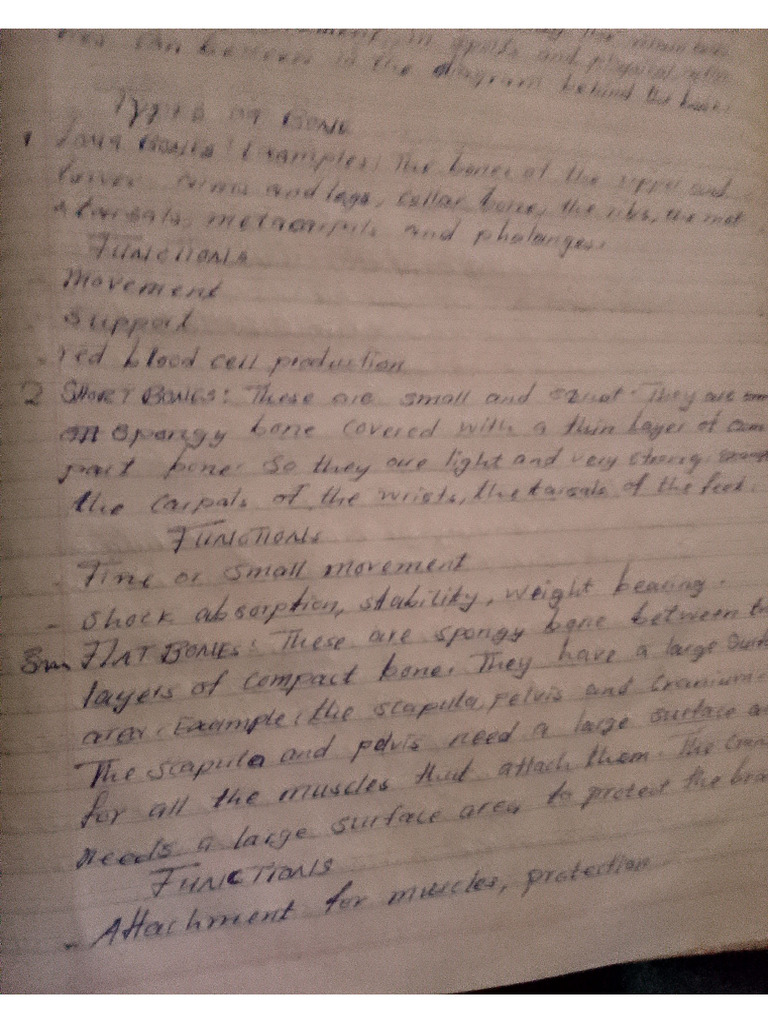 in sports and physical
can be seen in the diagram behind the book.
Types of BONE
1 Long BONES: Examples: The bones of the upper and
lower arms and legs, collar bone, the ribs, the met
atarsals, metacarpals and phalanges.
FUNCTIONS
- Movement
- Support
- red blood cell production
2 SHORT BONES: These are small and squat. They are
spongy bone covered with a thin layer of com
pact bone. So they are light and very strong.
the carpals of the wrists, the tarsals of the feet.
FUNCTIONS
- Fine or small movement
- Shock absorption, stability, weight bearing.
3 FLAT BONES: These are spongy bone between
layers of compact bone. They have a large
area. Example: the scapula, pelvis and cranium
The scapula and pelvis need a large surface
for all the muscles that attach them. The
needs a large surface area to protect the
FUNCTIONS
- Attachment for muscles, protection